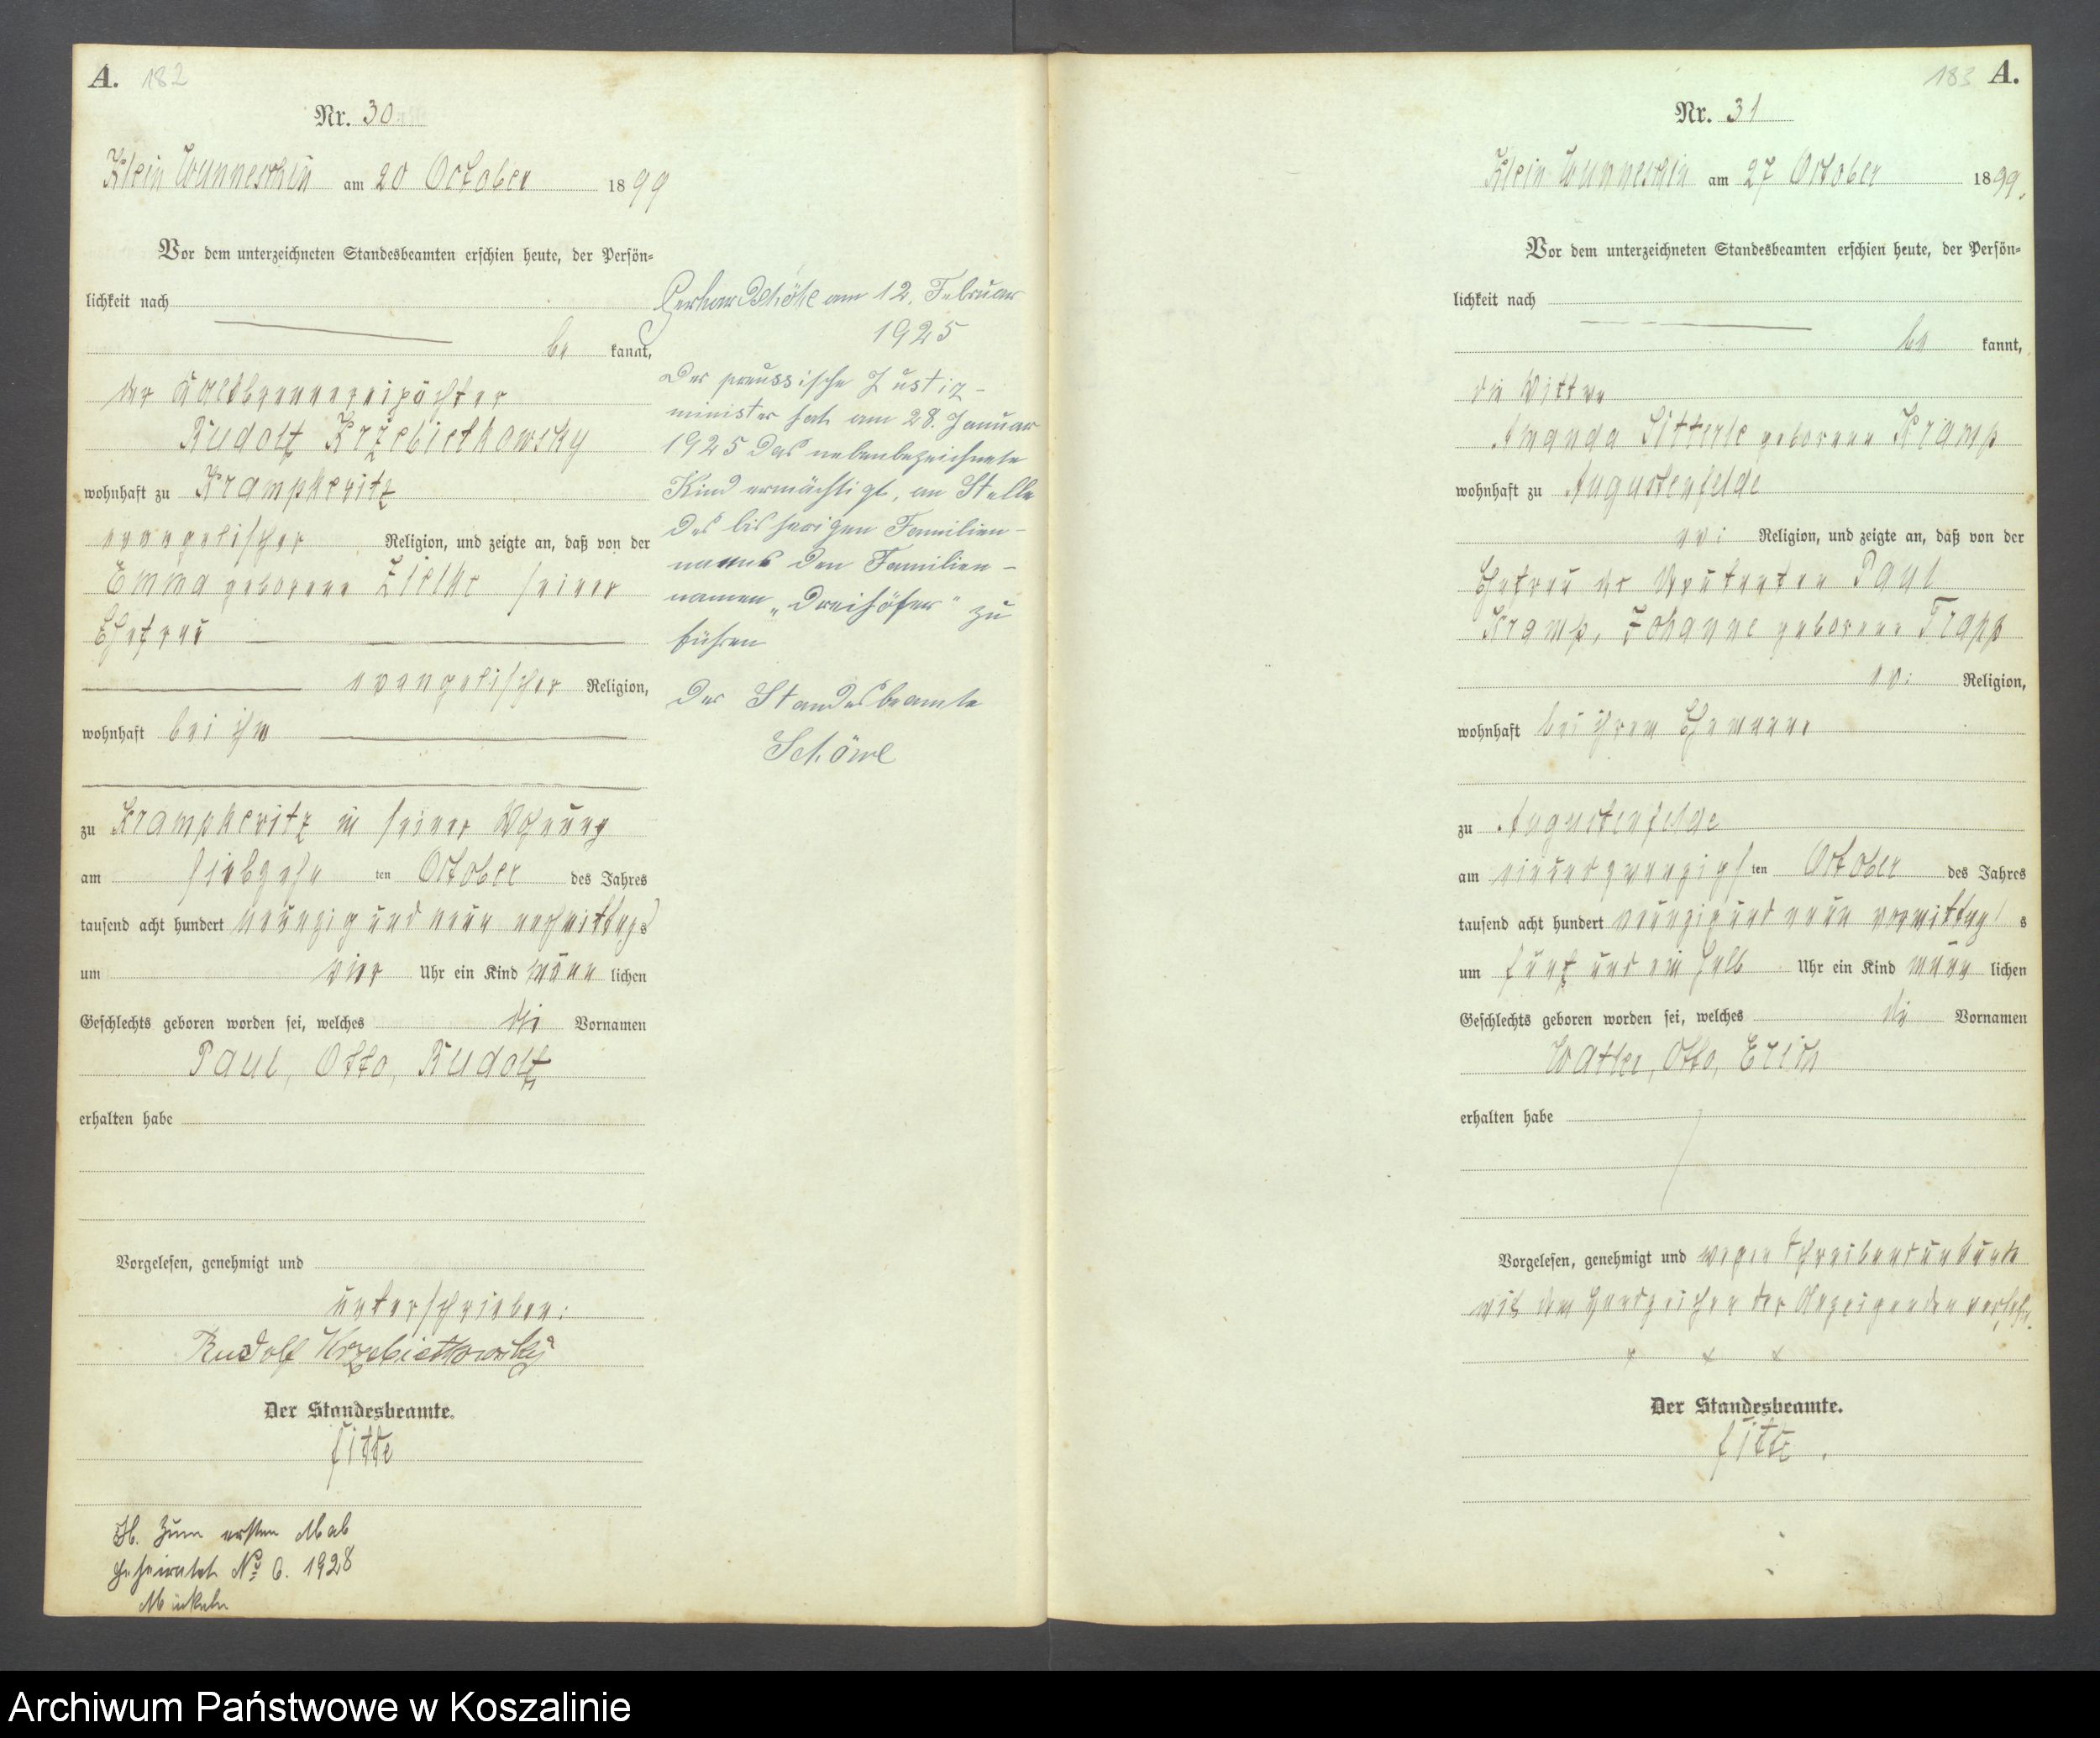 A. 182
Nr. 30
Klein Wunneschin am 20 October 1899
Vor dem unterzeichneten Standesbeamten erschien heute, der Persön-
lichkeit nach
be kannt,
der
Rudolf Krzebietkowsky
wohnhaft zu Krampkewitz
evangelischer Religion, und zeigte an, daß von der
Emma geborene Zielke seiner
Ehefrau
evangelischer Religion,
wohnhaft bei ihm
zu Krampkewitz in seiner Wohnung
am siebzehn ten October des Jahres
tausend acht hundert neunzig und neun nachmittags
um vier Uhr ein Kind männ lichen
Geschlechts geboren worden sei, welches die Vornamen
Paul, Otto, Rudolf
erhalten habe
Vorgelesen, genehmigt und
unterschrieben:
Rudolf Krzebietkowsky
Der Standesbeamte.
H. Zum ersten Mal
geheiratet No 6. 1928
am 12. Februar
1925
Der preussische Justiz-
minister hat am 28. Januar
1925 das nebenbezeichnete
Kind ermächtigt, an Stelle
des bisherigen Familien-
namens den Familien-
namen „Dreihöfer“ zu
führen
Der Standesbeamte
183 A.
Nr. 31
Klein Wunneschin am 27 October 1899.
Vor dem unterzeichneten Standesbeamten erschien heute, der Persön-
lichkeit nach
be kannt,
die Wittwe
Amanda geborene Kramp
wohnhaft zu Augustenfelde
ev: Religion, und zeigte an, daß von der
Ehefrau des Paul
Kramp, Johanne geborene Trapp
ev: Religion,
wohnhaft bei ihrem Ehemanne
zu Augustenfelde
am einundzwanzigsten October des Jahres
tausend acht hundert neunzig und neun vormittag s
um fünf und ein halb Uhr ein Kind männ lichen
Geschlechts geboren worden sei, welches die Vornamen
Walter, Otto, Erich
erhalten habe
Vorgelesen, genehmigt und wegen Schreibensunkunde
mit dem Handzeichen der Anzeigenden versehn.
x x x
Der Standesbeamte.
Archiwum Państwowe w Koszalinie